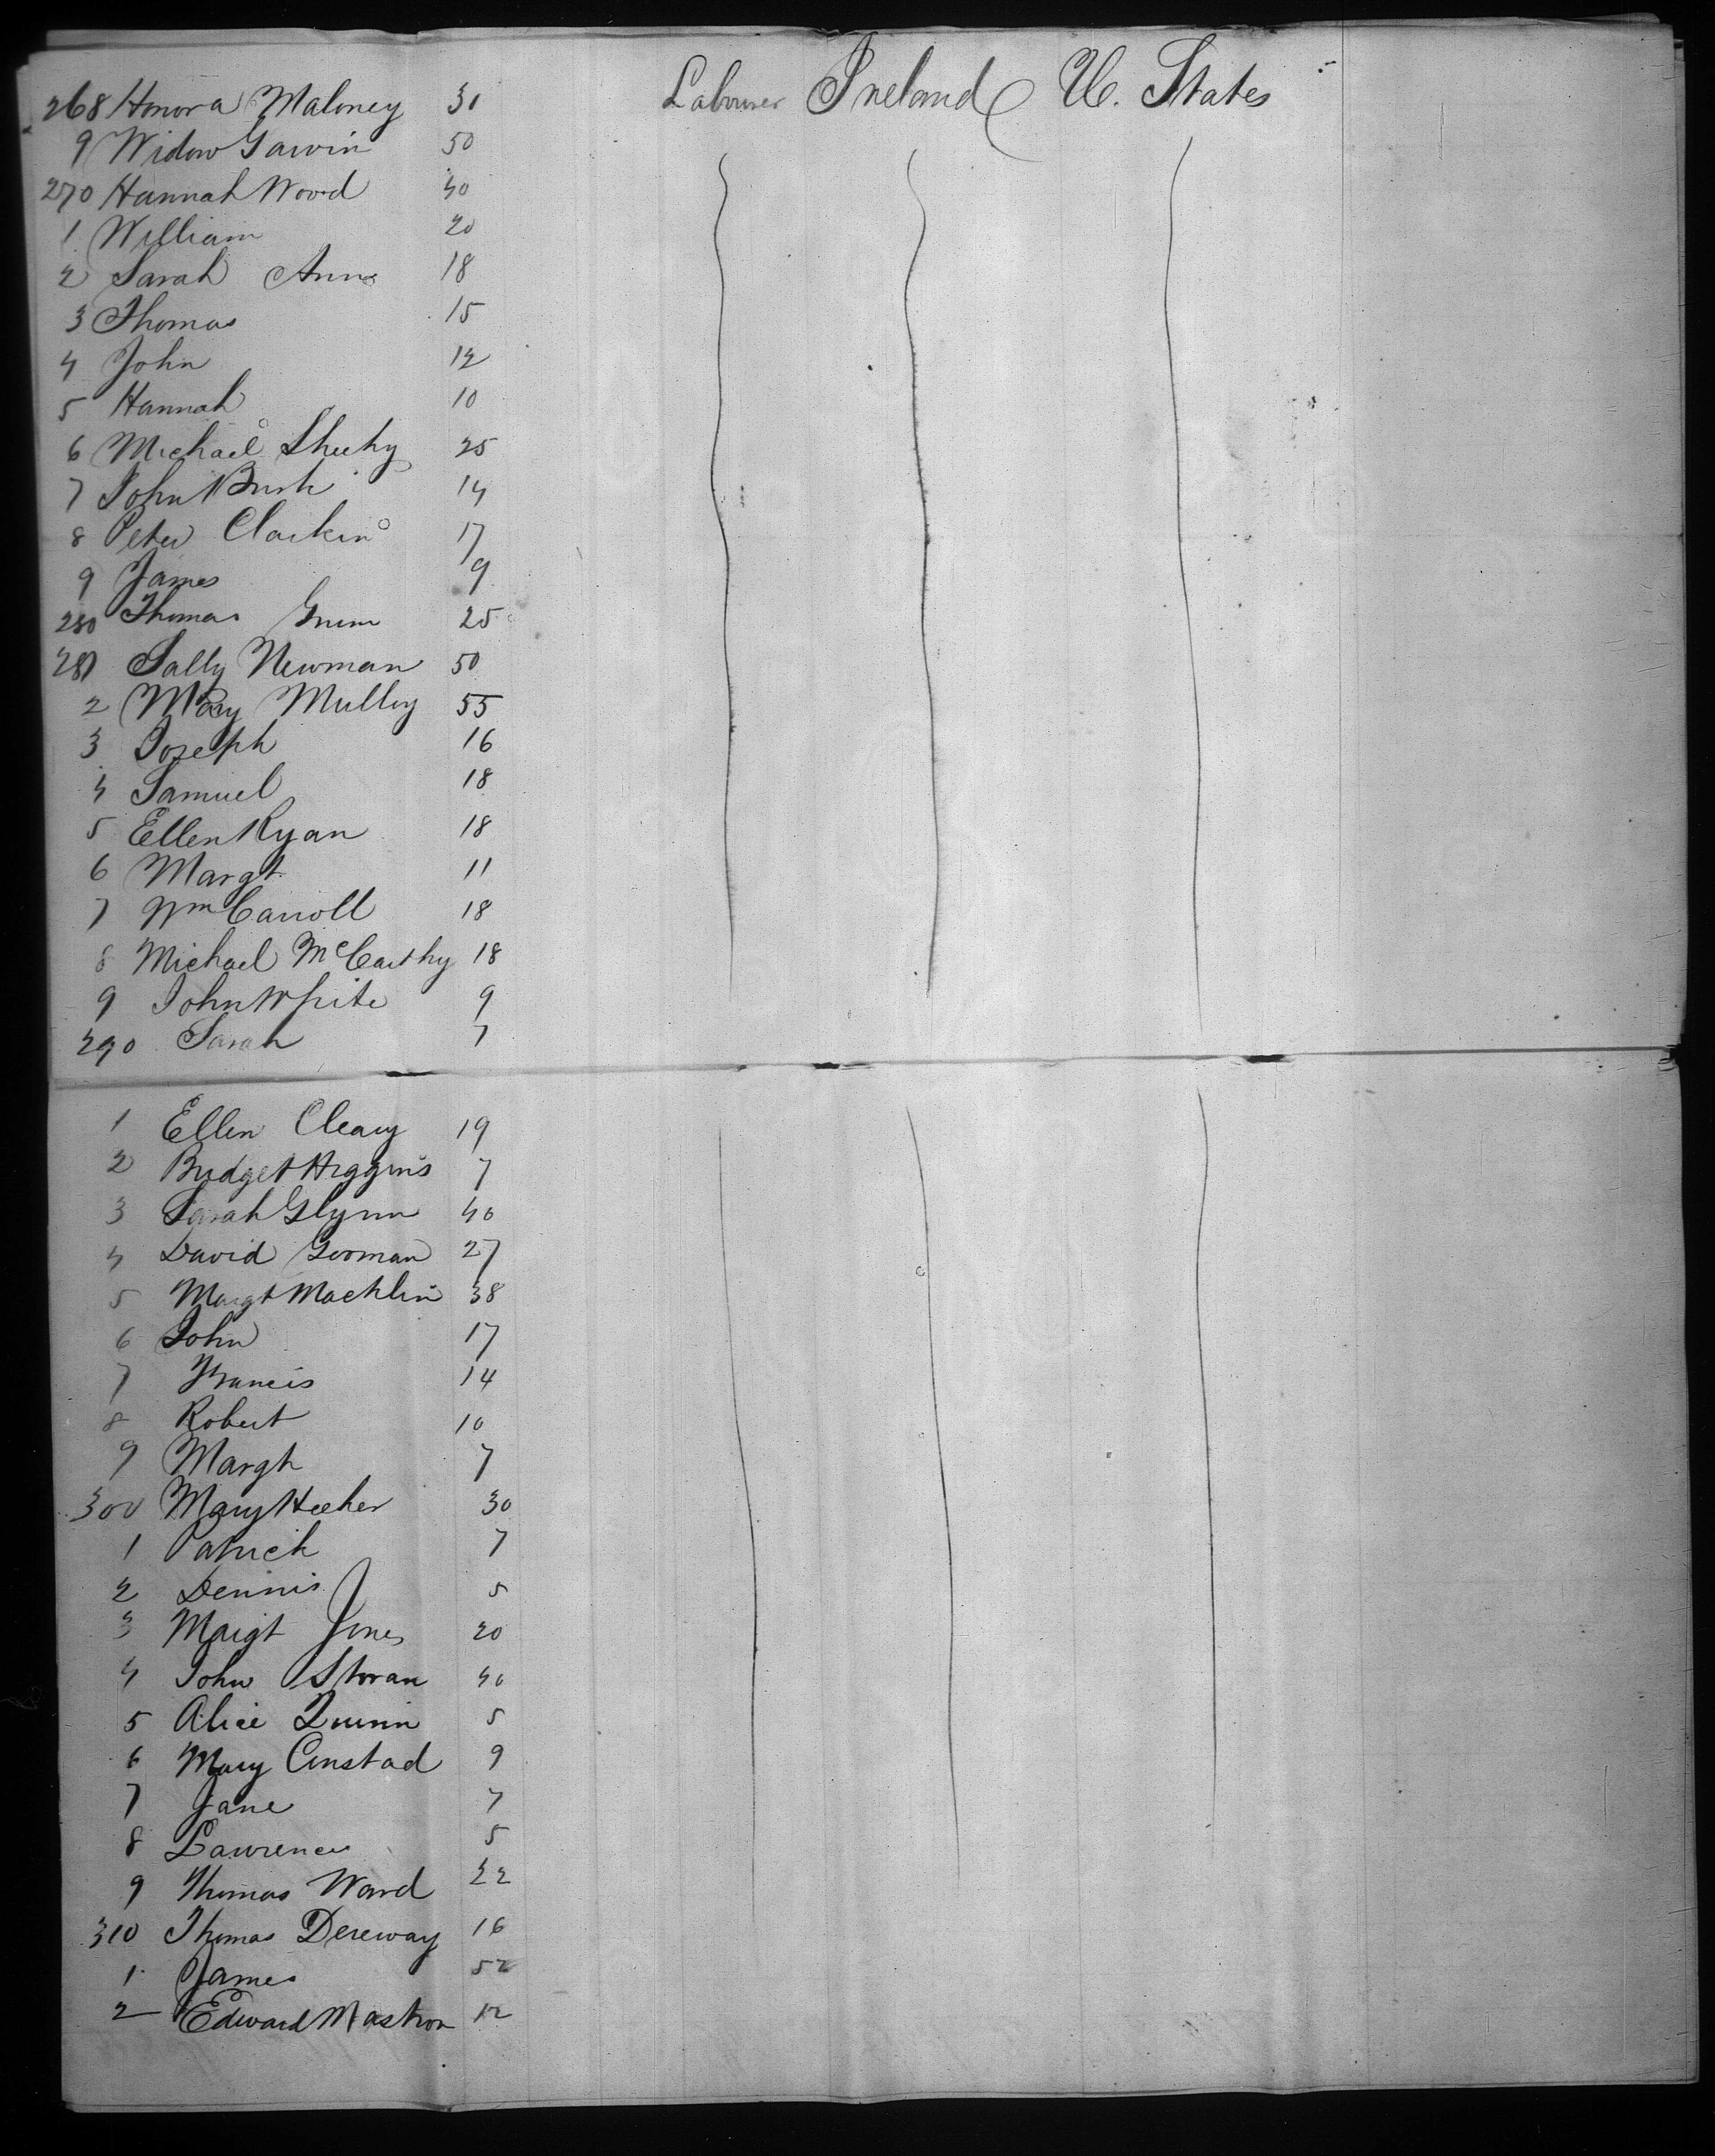 268 Honora Maloney 30 Labourer Ireland U. States
9 Widow Garvin 50
270 Hannah Wood 40
1 William 20
2 Sarah Ann 18
3 Thomas 15
4 John 12
5 Hannah 10
6 Michael Sheehy 25
7 John Bush 14
8 Peter Clarkin 17
9 James 9
280 Thomas 25
281 Sally Newman 50
2 Mary Mulley 55
3 Joseph 16
4 Samuel 18
5 Ellen Ryan 18
6 Margt 11
7 Wm Carroll 18
8 Michael McCarthy 18
9 John White 9
290 Sarah 7
1 Ellen Cleary 19
2 Bridget Higgins 7
3 Sarah Glynn 40
4 David Gorman 27
5 Margt Machlin 38
6 John 17
7 Francis 14
8 Robert 10
9 Margt 7
300 Mary Heeher 30
1 Patrick 7
2 Dennis 5
3 Margt Jones 20
4 John Storan 40
5 Alice Quinn 5
6 Mary 9
7 Jane 7
8 Lawrence 5
9 Thomas Ward 22
310 Thomas Dereway 16
1 James 52
2 Edward Mastron 12